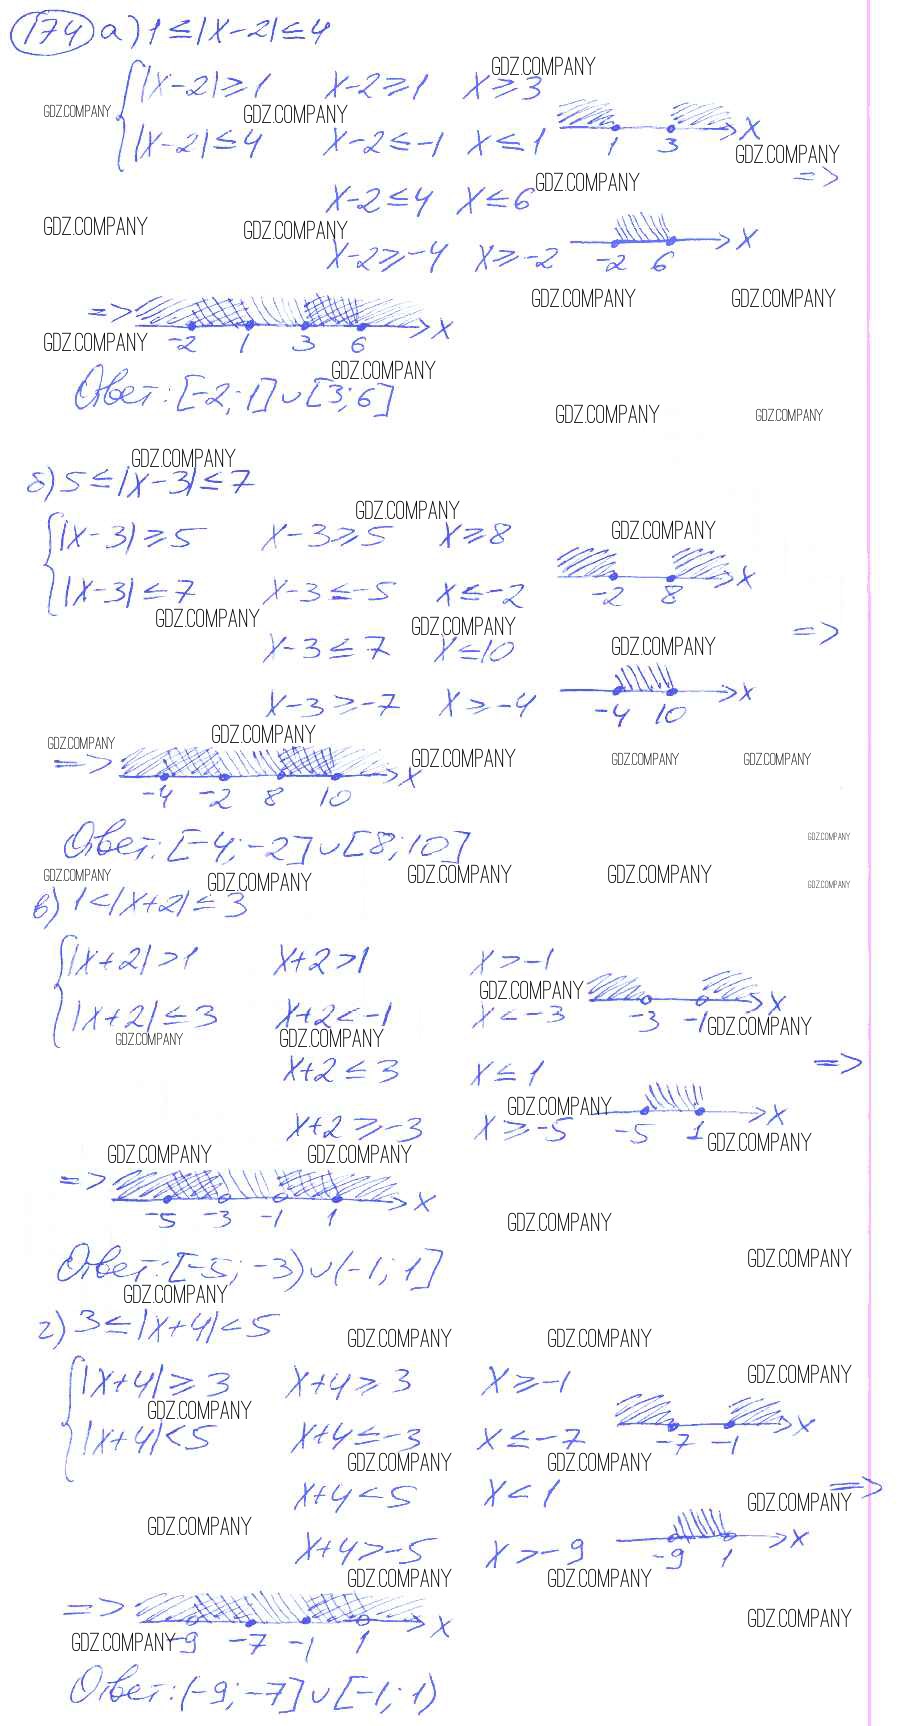 174 а) 1 ≤ |x-2| ≤ 4
GDZ.COMPANY
{ |x-2| ≥ 1 x-2 ≥ 1 x ≥ 3
GDZ.COMPANY GDZ.COMPANY
|x-2| ≤ 4 x-2 ≤ -1 x ≤ 1 1 3 x
GDZ.COMPANY
=>
GDZ.COMPANY
x-2 ≤ 4 x ≤ 6
GDZ.COMPANY GDZ.COMPANY
x-2 ≥ -4 x ≥ -2 -2 6 x
GDZ.COMPANY GDZ.COMPANY
=> -2 1 3 6 x
GDZ.COMPANY
GDZ.COMPANY
Ответ: [-2; 1] ∪ [3; 6]
GDZ.COMPANY GDZ.COMPANY
GDZ.COMPANY
б) 5 ≤ |x-3| ≤ 7
GDZ.COMPANY
GDZ.COMPANY
{ |x-3| ≥ 5 x-3 ≥ 5 x ≥ 8
|x-3| ≤ 7 x-3 ≤ -5 x ≤ -2 -2 8 x
GDZ.COMPANY GDZ.COMPANY
=>
GDZ.COMPANY
x-3 ≤ 7 x ≤ 10
x-3 ≥ -7 x ≥ -4 -4 10 x
GDZ.COMPANY GDZ.COMPANY
GDZ.COMPANY GDZ.COMPANY GDZ.COMPANY
=> -4 -2 8 10 x
GDZ.COMPANY
Ответ: [-4; -2] ∪ [8; 10]
GDZ.COMPANY GDZ.COMPANY GDZ.COMPANY GDZ.COMPANY GDZ.COMPANY
в) 1 < |x+2| ≤ 3
{ |x+2| > 1 x+2 > 1 x > -1
GDZ.COMPANY
|x+2| ≤ 3 x+2 < -1 x < -3 -3 -1 x
GDZ.COMPANY
GDZ.COMPANY GDZ.COMPANY
=>
x+2 ≤ 3 x ≤ 1
GDZ.COMPANY
x+2 ≥ -3 x ≥ -5 -5 1 x
GDZ.COMPANY
GDZ.COMPANY GDZ.COMPANY
=> -5 -3 -1 1 x
GDZ.COMPANY
GDZ.COMPANY
Ответ: [-5; -3) ∪ (-1; 1]
GDZ.COMPANY
г) 3 ≤ |x+4| < 5
GDZ.COMPANY GDZ.COMPANY
GDZ.COMPANY
{ |x+4| ≥ 3 x+4 ≥ 3 x ≥ -1
GDZ.COMPANY
|x+4| < 5 x+4 ≤ -3 x ≤ -7 -7 -1 x
GDZ.COMPANY GDZ.COMPANY
=>
x+4 < 5 x < 1
GDZ.COMPANY
GDZ.COMPANY
x+4 > -5 x > -9 -9 1 x
GDZ.COMPANY GDZ.COMPANY
=> -9 -7 -1 1 x
GDZ.COMPANY
GDZ.COMPANY
Ответ: (-9; -7] ∪ [-1; 1)